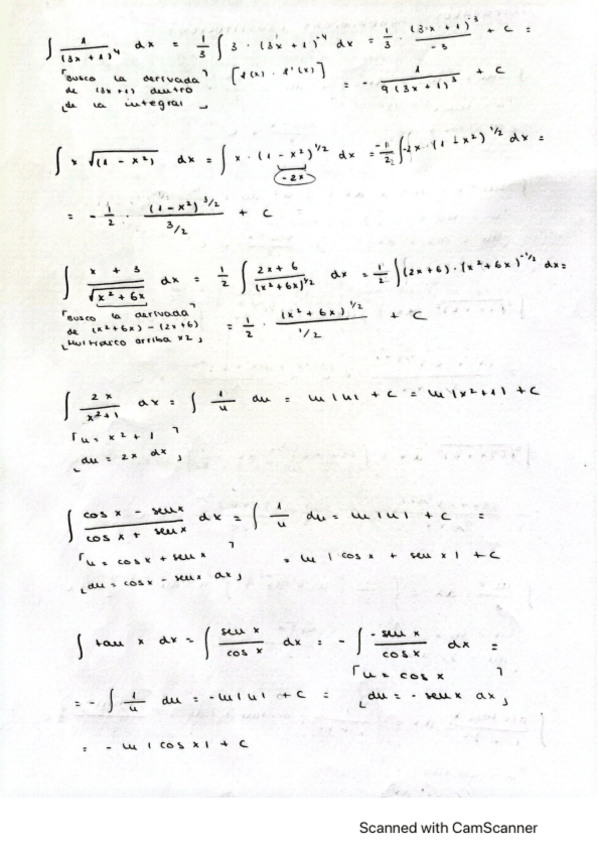 ∫ 1/(3x+1)^4 dx = 1/3 ∫ 3 · (3x+1)^-4 dx = 1/3 · (3x+1)^-3/-3 + C =
「Busco la derivada」 [f(x) · f'(x)] = - 1/9(3x+1)^3 + C
de (3x+1) dentro
⌊de la integral⌋
∫ x √(1-x²) dx = ∫ x · (1-x²)^1/2 dx = -1/2 ∫ -2x · (1-x²)^1/2 dx =
-2x
= - 1/2 · (1-x²)^3/2 / 3/2 + C
∫ x+3/√x²+6x dx = 1/2 ∫ 2x+6/(x²+6x)^1/2 dx = 1/2 ∫ (2x+6) · (x²+6x)^-1/2 dx =
「Busco la derivada」
de (x²+6x) - (2x+6) = 1/2 · (x²+6x)^1/2 / 1/2 + C
⌊Multiplico arriba x2⌋
∫ 2x/x²+1 dx = ∫ 1/u du = ln|u| + C = ln|x²+1| + C
「u = x²+1」
⌊du = 2x dx⌋
∫ cos x - sen x/cos x + sen x dx = ∫ 1/u du = ln|u| + C =
「u = cos x + sen x」 = ln |cos x + sen x| + C
⌊du = cos x - sen x dx⌋
∫ tan x dx = ∫ sen x/cos x dx = - ∫ -sen x/cos x dx =
「u = cos x」
= - ∫ 1/u du = -ln|u| + C = ⌊du = - sen x dx⌋
= - ln |cos x| + C
Scanned with CamScanner